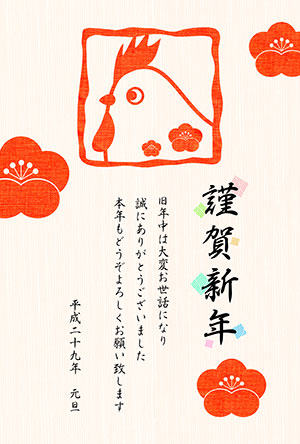 謹賀新年
旧年中は大変お世話になり
誠にありがとうございました
本年もどうぞよろしくお願い致します
平成二十九年　元旦